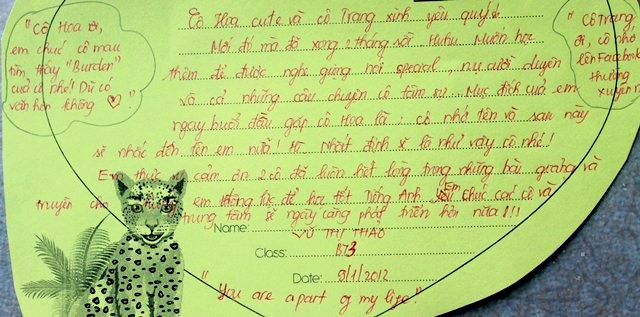 "Cô Hoa ơi,
em chúc cô mau
tìm thấy "Burden"
của cô nhé! Dù có
vẫn hơn không ♡"
Cô Hoa cute và cô Trang xinh yêu quý!
Mới đó mà đã xong 2 tháng rồi Huhu. Muốn học
thêm để được nghe giọng nói special, nụ cười duyên
và cả những câu chuyện cô tâm sự. Mục đích của em
ngay buổi đầu gặp cô Hoa là: cô nhớ tên và sau này
sẽ nhắc đến tên em nữa! Hì Nhất định sẽ là như vậy cô nhé!
Em thực sự cảm ơn 2 cô đã luôn hết lòng trong những bài giảng và
truyền cho em động lực để học tốt Tiếng Anh. Em chúc các cô và
trung tâm sẽ ngày càng phát triển hơn nữa!!!
"Cô Trang
ơi, cô nhớ
lên Facebook
thường
xuyên
Name: VŨ THỊ THẢO
Class: B73
Date: 9/1/2012
"You are a part of my life"